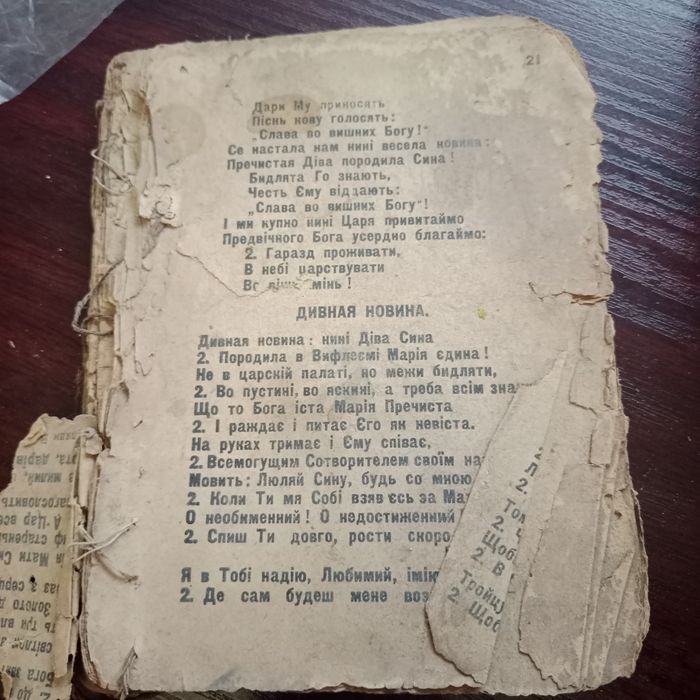 21
Дари Му приносять
Піснь нову голосять:
„Слава во вишних Богу!"
Се настала нам нині весела новина:
Пречистая Діва породила Сина!
Бидлята Го знають,
Честь Єму віддають:
„Слава во вишних Богу"!
І ми купно нині Царя привитаймо
Предвічного Бога усердно благаймо:
2. Гаразд проживати,
В небі царствувати
мінь!
ДИВНАЯ НОВИНА.
Дивная новина: нині Діва Сина
2. Породила в Вифлеємі Марія єдина!
Не в царскій палаті, но межи бидляти,
2. Во пустині, во яскині, а треба всім зна
Що то Бога іста Марія Пречиста
2. І раждає і питає Єго як невіста.
На руках тримає і Єму співає,
2. Всемогущим Сотворителем своїм на
Мовить: Люляй Сину, будь со мною
2. Коли Ти мя Собі взяв єсь за Мат
О необименний! О недостиженний!
2. Спиш Ти довго, рости скоро
Я в Тобі надію, Любимий, імію
2. Де сам будеш мене воз
2.
Том
2.
Щоб
2. В
Тройцу
2. Щоб
ота, дарів
в милий,
лагословить
А Цар все
иф старень
я Мати Си
раз з серц
Золото д
ть три вла
світили з
Бога зав
2. До